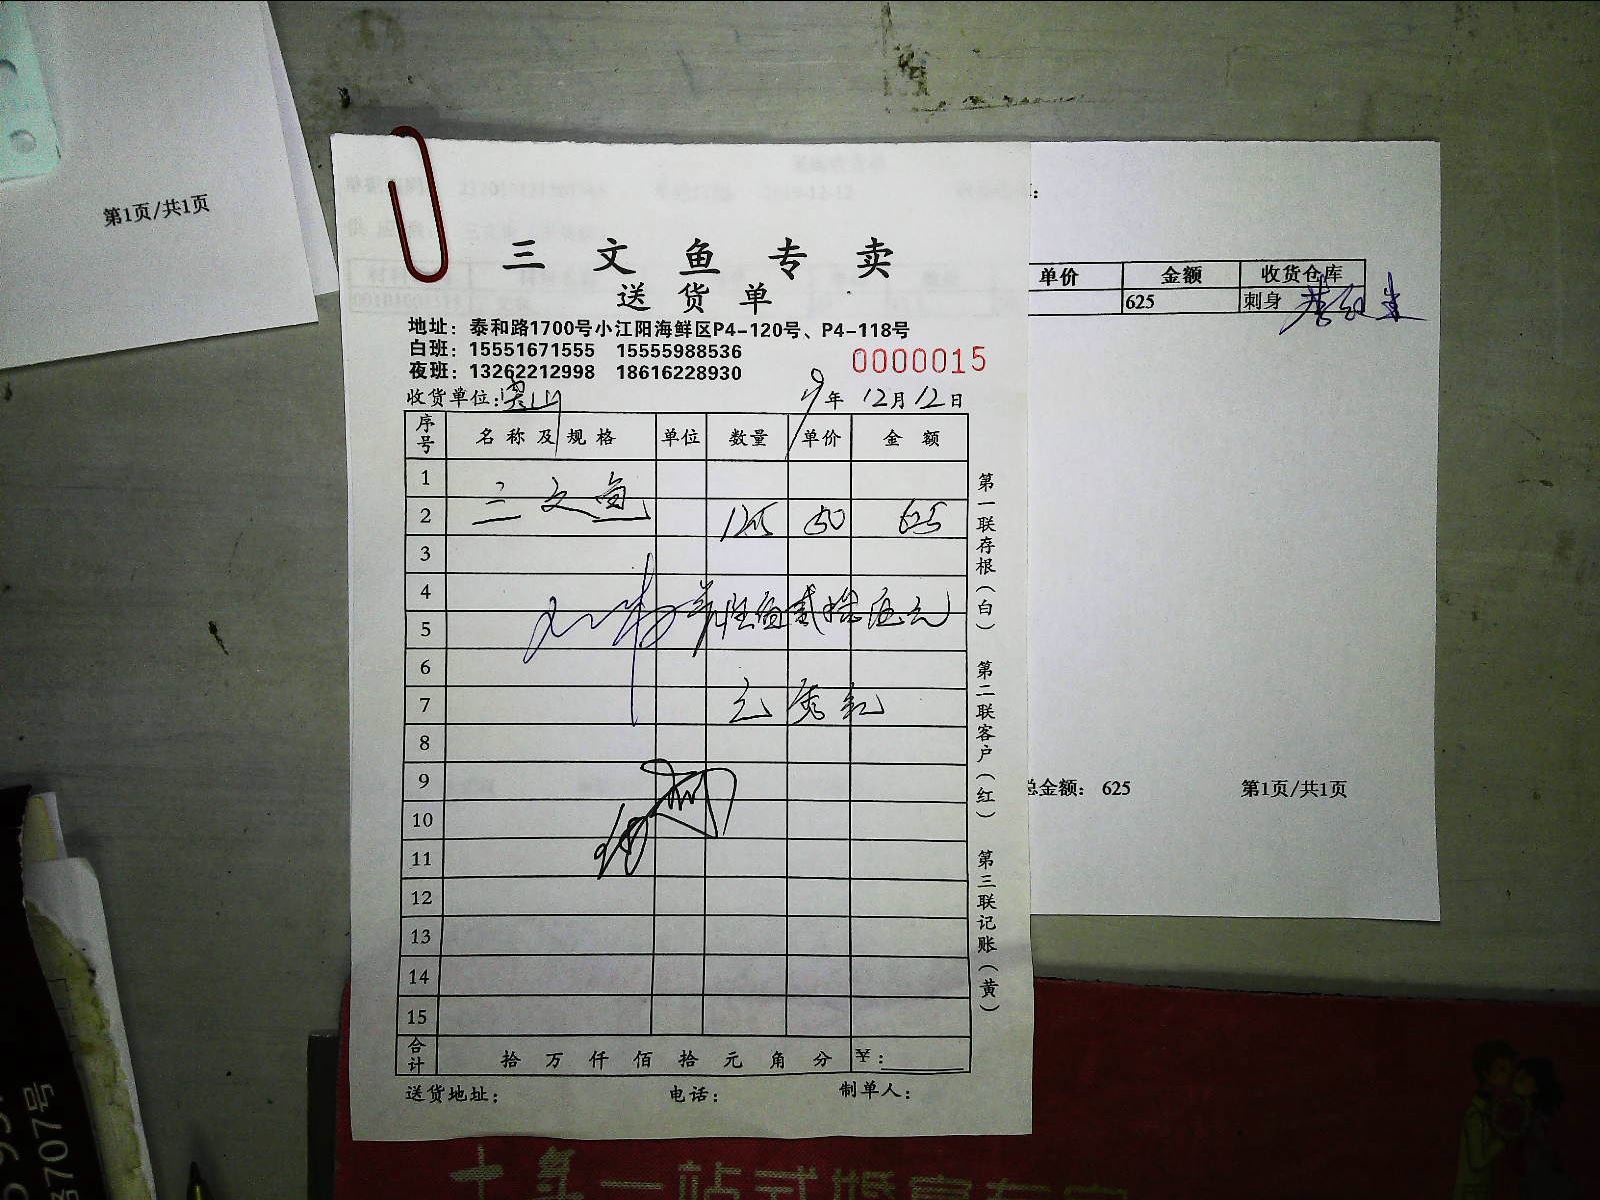 第1页/共1页
三文鱼专卖
送货单
地址：泰和路1700号小江阳海鲜区P4-120号、P4-118号
白班：15551671555 15555988536
夜班：13262212998 18616228930
0000015
收货单位： 9年12月12日
序号 名称及规格 单位 数量 单价 金额
1
2 三文鱼 125 50 625
3
4
5 陆佰贰拾伍元
6
7
8
9
10
11
12
13
14
15
合计 拾万仟佰拾元角分 ¥：
送货地址： 电话： 制单人：
第一联存根（白） 第二联客户（红） 第三联记账（黄）
单价 金额 收货仓库
625 刺身
总金额： 625 第1页/共1页
707号
一站式婚宴专家